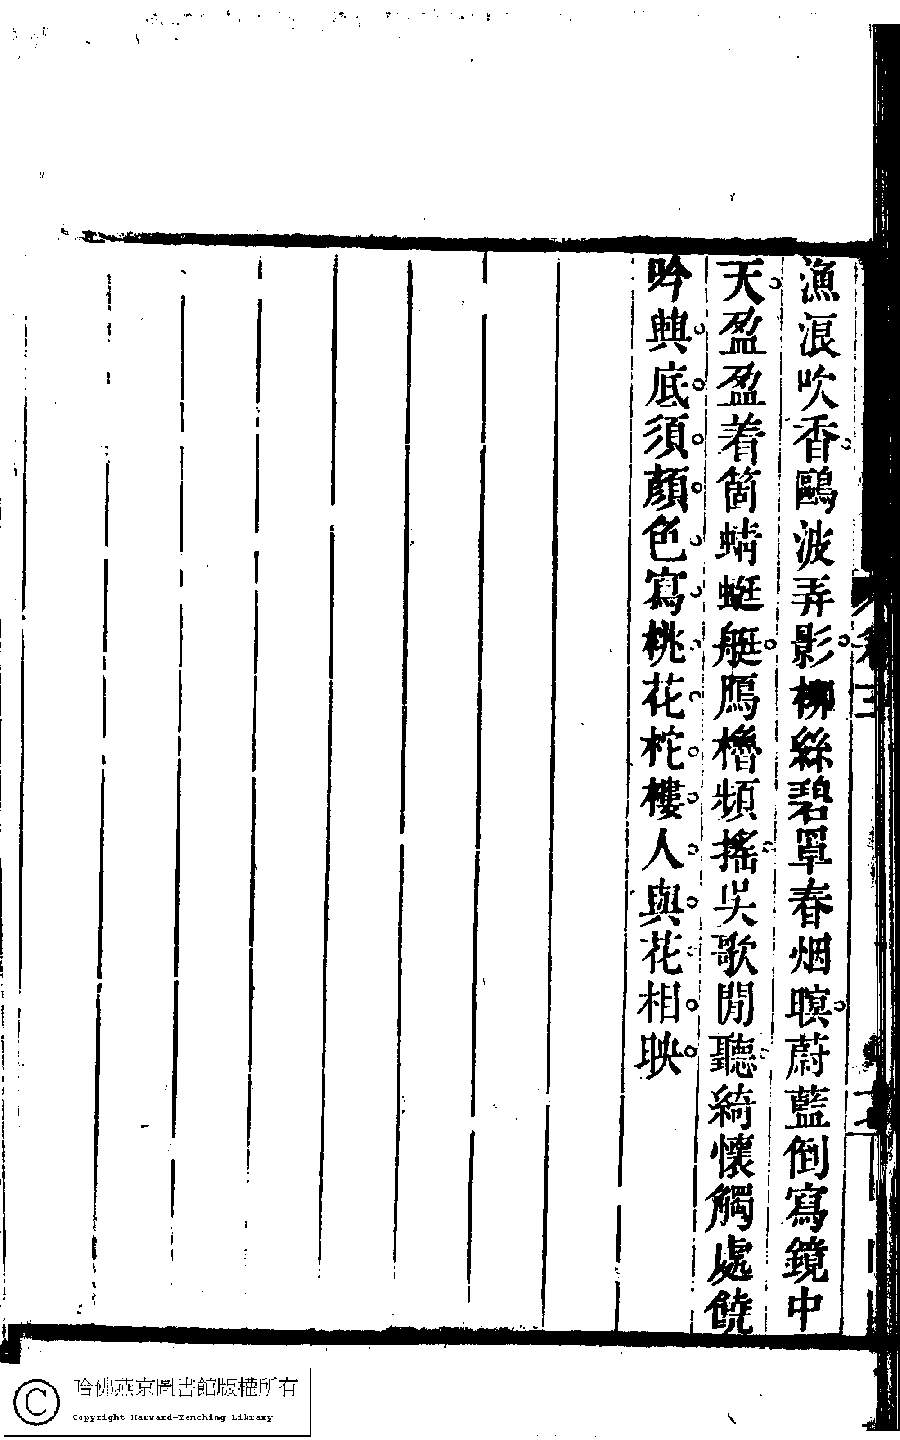 漁浪吹香鷗波弄影柳絲碧罩春烟暝蔚藍倒寫鏡中
天盈盈着箇蜻蜓艇鴈櫓頻搖吳歌閒聽綺懷觸處饒
吟興底須顏色寫桃花柁樓人與花相映
卷三
哈佛燕京圖書館版權所有
Copyright Harvard-Yenching Library